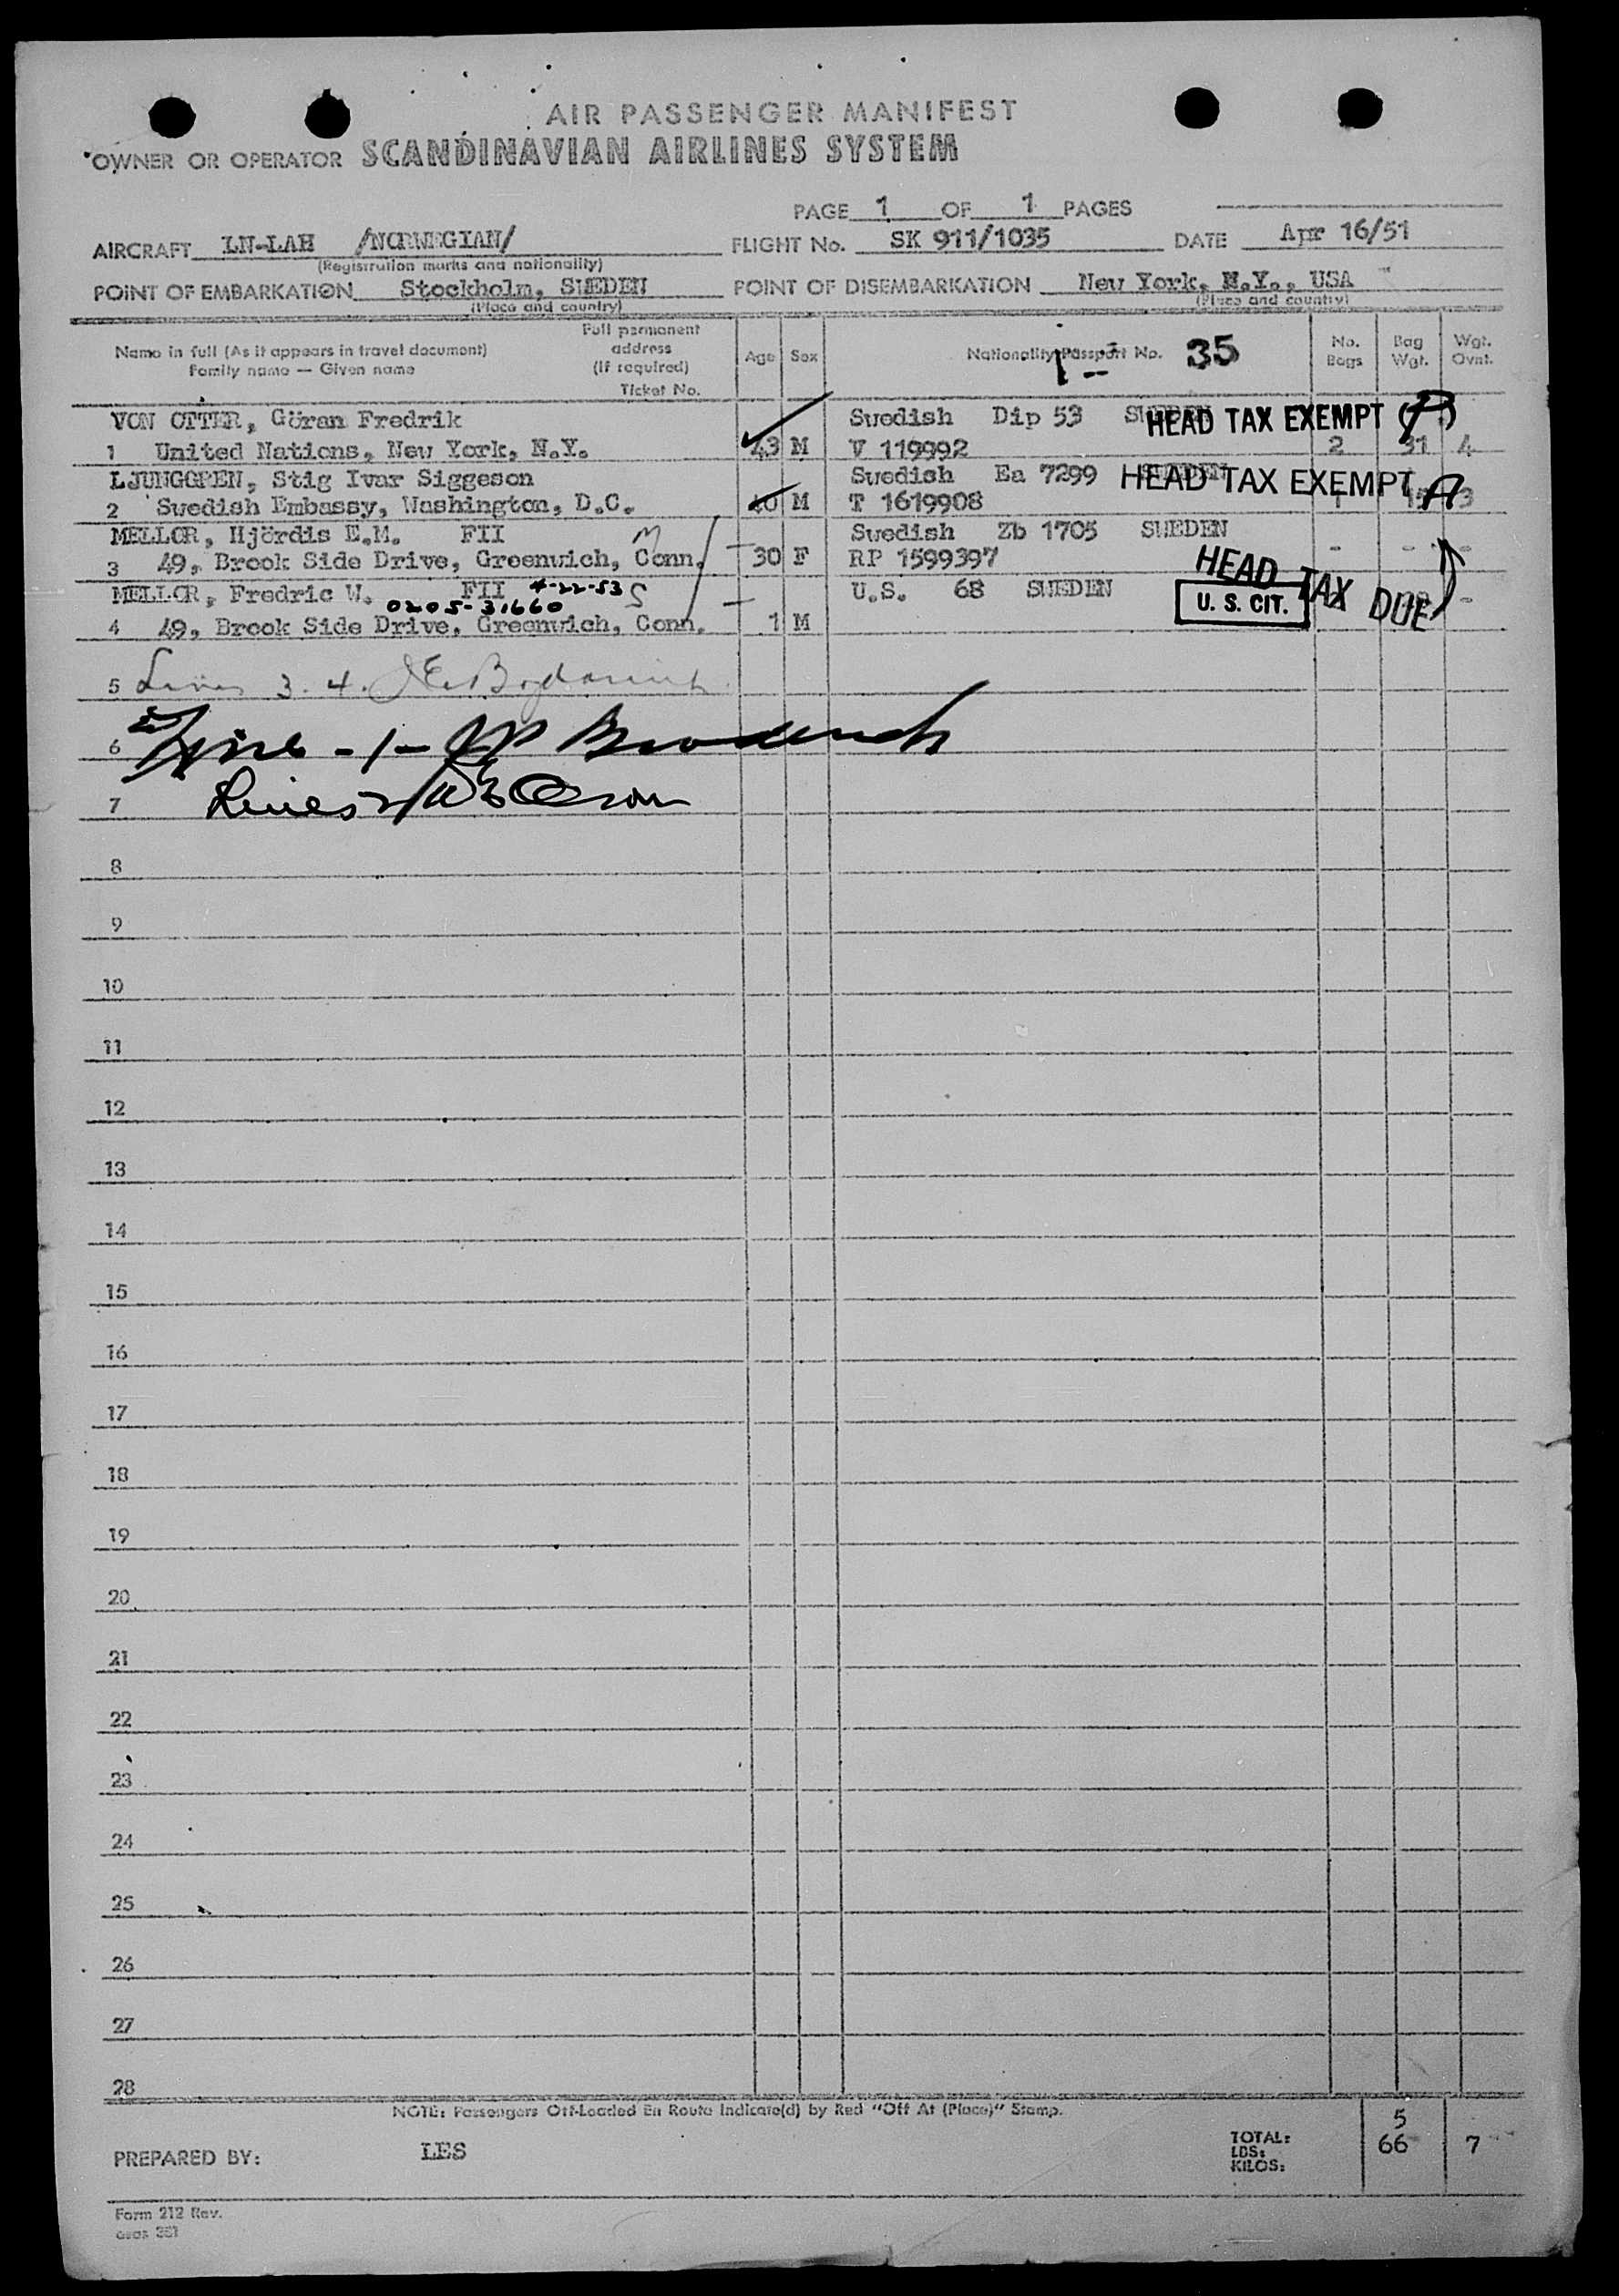 AIR PASSENGER MANIFEST
OWNER OR OPERATOR SCANDINAVIAN AIRLINES SYSTEM
PAGE 1 OF 1 PAGES
AIRCRAFT LN-LAH /NORWEGIAN/ FLIGHT No. SK 911/1035 DATE Apr 16/51
(Registration marks and nationality)
POINT OF EMBARKATION Stockholm, SWEDEN POINT OF DISEMBARKATION New York, N.Y., USA
(Place and country) (Place and country)
Name in full (As it appears in travel document) Family name — Given name
Full permanent address (If required) Ticket No.
Age Sex Nationality Passport No. 35 No. Bags Bag Wgt. Wgt. Ovnt.
VON OTTER, Göran Fredrik Swedish Dip 53 SWEDEN HEAD TAX EXEMPT
1 United Nations, New York, N.Y. 43 M V 119992 2 31 4
LJUNGGREN, Stig Ivar Siggeson Swedish Ea 7299 SWEDEN HEAD TAX EXEMPT
2 Swedish Embassy, Washington, D.C. 40 M T 1619908 1 3
MELLOR, Hjördis E.M. FII Swedish Zb 1705 SWEDEN
3 49, Brook Side Drive, Greenwich, Conn. 30 F RP 1599397 - - -
HEAD TAX DUE
MELLOR, Fredric W. FII 4-22-53 U.S. 68 SWEDEN U. S. CIT.
0205-31660
4 49, Brook Side Drive, Greenwich, Conn. 1 M
5 Lines 3. 4.
6 Line -1-
7 Lines 2
8
9
10
11
12
13
14
15
16
17
18
19
20
21
22
23
24
25
26
27
28
NOTE: Passengers Off-Loaded En Route Indicate(d) by Red "Off At (Place)" Stamp.
5
PREPARED BY: LES TOTAL: LBS: KILOS: 66 7
Form 212 Rev.